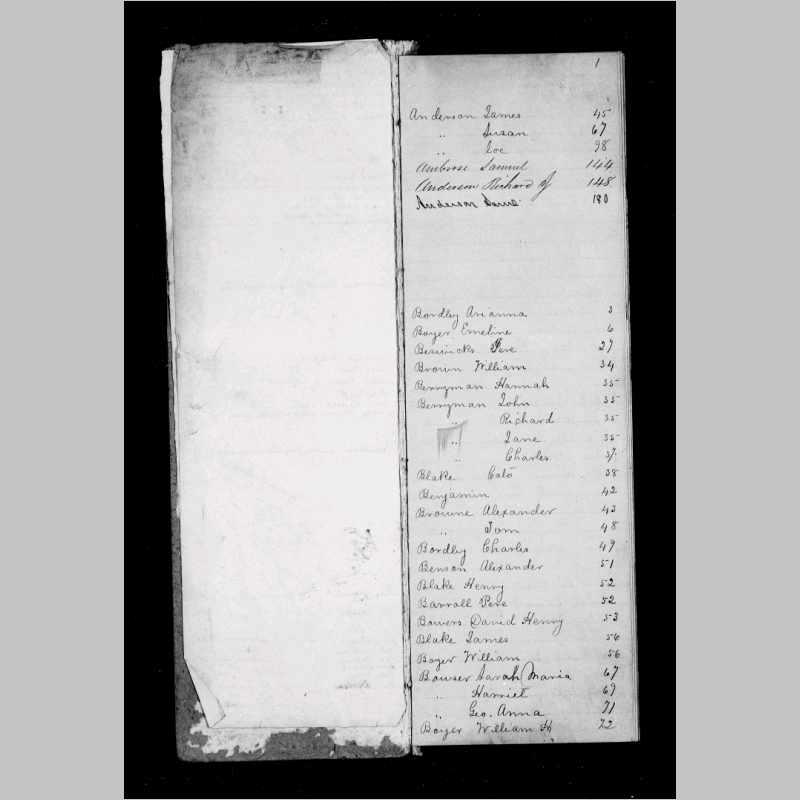 1
Anderson James 45
" Susan 67
" Joe 98
Ambrose Samuel 144
Anderson Richard 148
Anderson 180
Bordley Arianna 3
Boyer Emeline 6
Beswicks Pere 27
Brown William 34
Berryman Hannah 35
Berryman John 35
" Richard 35
" Jane 35
" Charles 37
Blake Cato 38
Benjamin 42
Browne Alexander 43
" Tom 48
Bordley Charles 49
Benson Alexander 51
Blake Henry 52
Barroll Pere 52
Bowers David Henry 53
Blake James 56
Boyer William 56
Bowser Sarah Maria 67
" Harriet 69
" Geo. Anna 71
Boyer William H 72